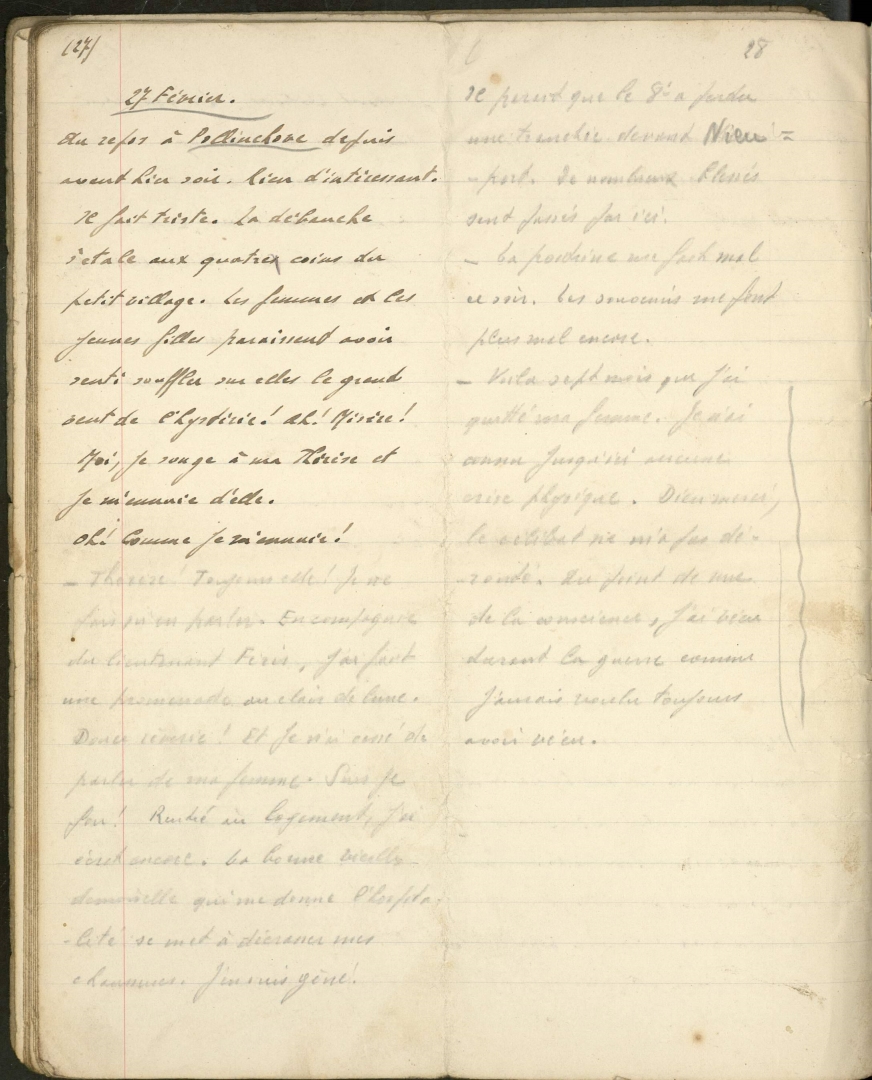 (27)
27 Février.
Au repos à Pollinchove depuis
avant hier soir. Rien d'intéressant.
Il fait triste. La débauche
s'étale aux quatres coins du
petit village. Les femmes et les
jeunes filles paraissent avoir
senti souffler sur elles le grand
vent de l'hystérie! Ah! Misère!
Moi, je songe à ma Thérèse et
je m'ennuie d'elle.
Oh! Comme je m'ennuie!
– Thérèse! Toujours elle! Je ne
fais qu'en parler. En compagnie
du lieutenant , j'ai fait
une promenade au clair de lune.
Douce rêverie! Et je n'ai cessé de
parler de ma femme. Suis je
fou! Rentré au logement, j'ai
écrit encore. La bonne vieille
demoiselle qui me donne l'hospita-
-lité se met à décrasser mes
chaussures. J'en suis gêné!
28
Il parait que le 8e a perdu
une tranchée devant Nieu=
-port. De nombreux blessés
sont passés par ici.
– La poitrine me fait mal
ce soir. Les souvenirs me font
plus mal encore.
– Voila sept mois que j'ai
quitté ma femme. Je n'ai
connu jusqu'ici aucune
crise physique. Dieu merci,
le célibat ne m'a pas dé-
-routé. Au point de vue
de la conscience, j'ai vécu
durant la guerre comme
j'aurais voulu toujours
avoir vécu.